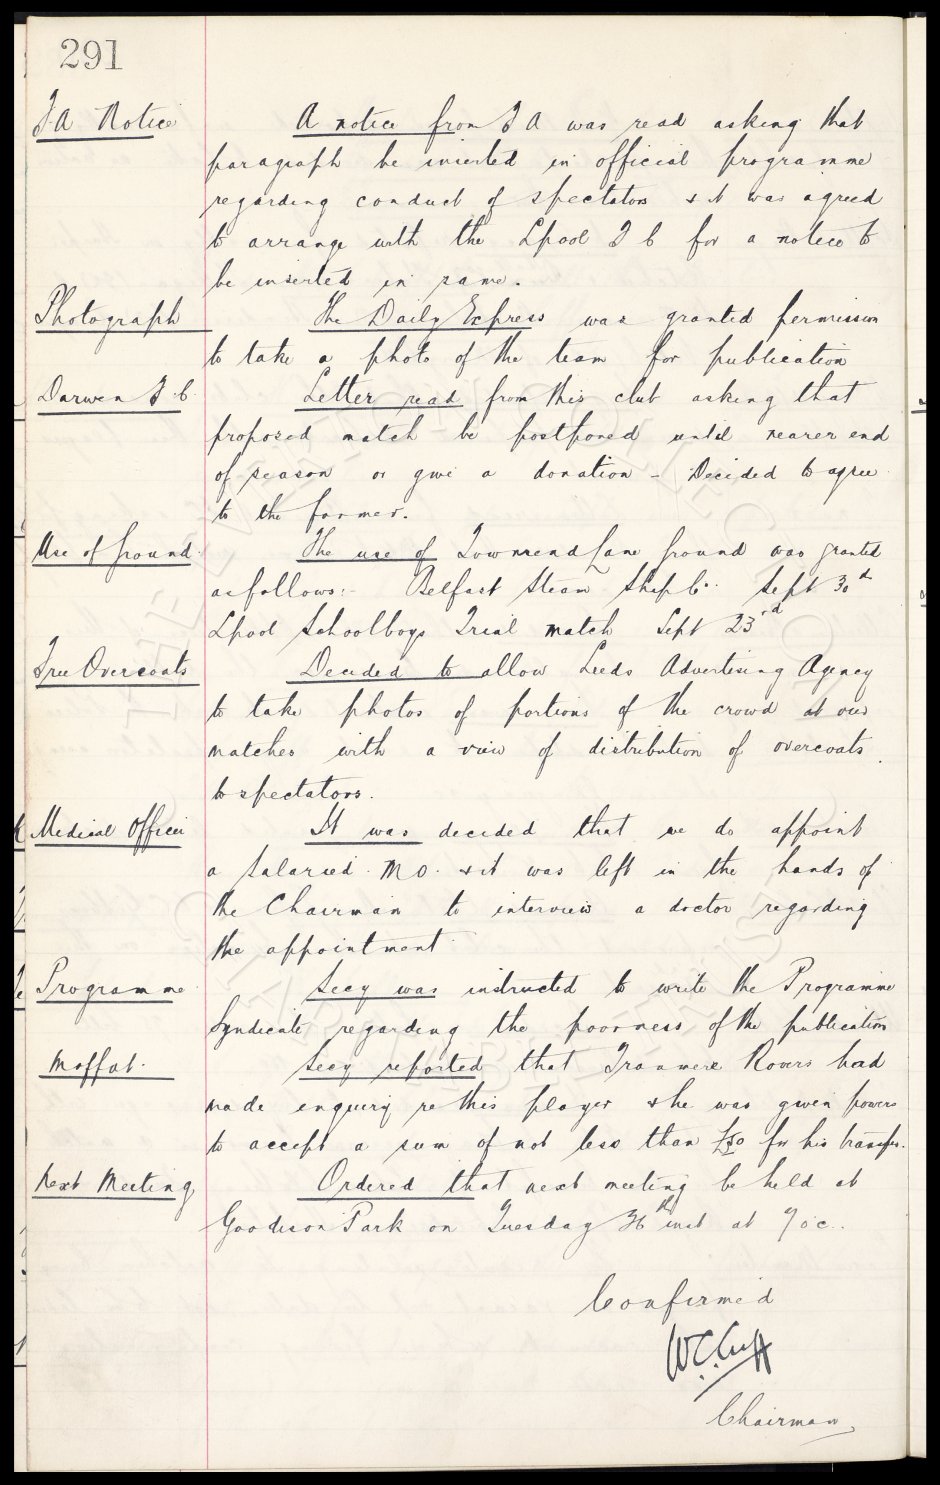 291
F.A Notice
A notice from F A was read asking that
paragraph be inserted in official programme
regarding conduct of spectators & it was agreed
to arrange with the Lpool F C for a notice to
be inserted in same.
Photograph
The Daily Express was granted permission
to take a photo of the team for publication
Darwen F.C.
Letter read from this club asking that
proposed match be postponed until nearer end
of season or give a donation - Decided to agree
to the former.
Use of Ground
The use of Townsend Lane ground was granted
as follows:- Belfast Steam Ship Co. Sept 30th
Lpool Schoolboys Trial match Sept 23rd
Free Overcoats
Decided to allow Leeds Advertising Agency
to take photos of portions of the crowd at our
matches with a view of distribution of overcoats
to spectators.
Medical Officer
It was decided that we do appoint
a salaried. M O. & it was left in the hands of
the Chairman to interview a doctor regarding
the appointment
Programme
Secy was instructed to write the Programme
Syndicate regarding the poorness of the publication
Moffat.
Secy reported that Tranmere Rovers had
made enquiry re this player & he was given powers
to accept a sum of not less than £50 for his transfer.
Next Meeting
Ordered that next meeting be held at
Goodison Park on Tuesday inst at 7 o'c..
Confirmed
W.C. Cuff
Chairman